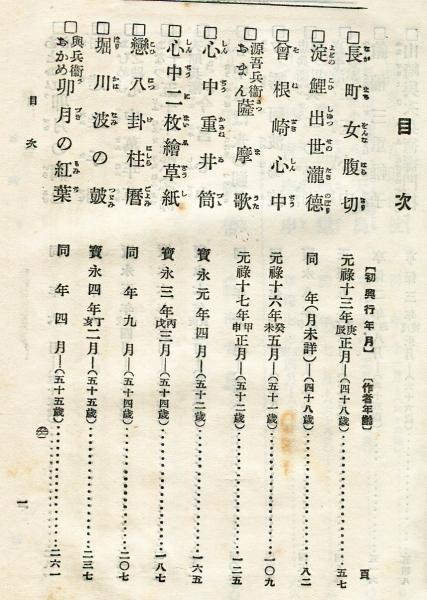 目次
【初興行年月】 【作者年齡】 頁
□長町女腹切 元祿十三年庚辰正月―(四十八歲)………五七
□淀鯉出世瀧德 同年(月未詳)―(四十八歲)………八二
□曾根崎心中 元祿十六年癸未五月―(五十一歲)………一〇九
□源吾兵衞おまん薩摩歌 元祿十七年甲申正月―(五十二歲)………一二五
□心中重井筒 寶永元年四月―(五十二歲)………一六五
□心中二枚繪草紙 寶永三年丙戌三月―(五十四歲)………一八七
□戀八卦柱曆 同年九月―(五十四歲)………二〇七
□堀川波の鼓 寶永四年丁亥二月―(五十五歲)………二三七
□與兵衞おかめ卯月の紅葉 同年四月―(五十五歲)………二六一
目次
一